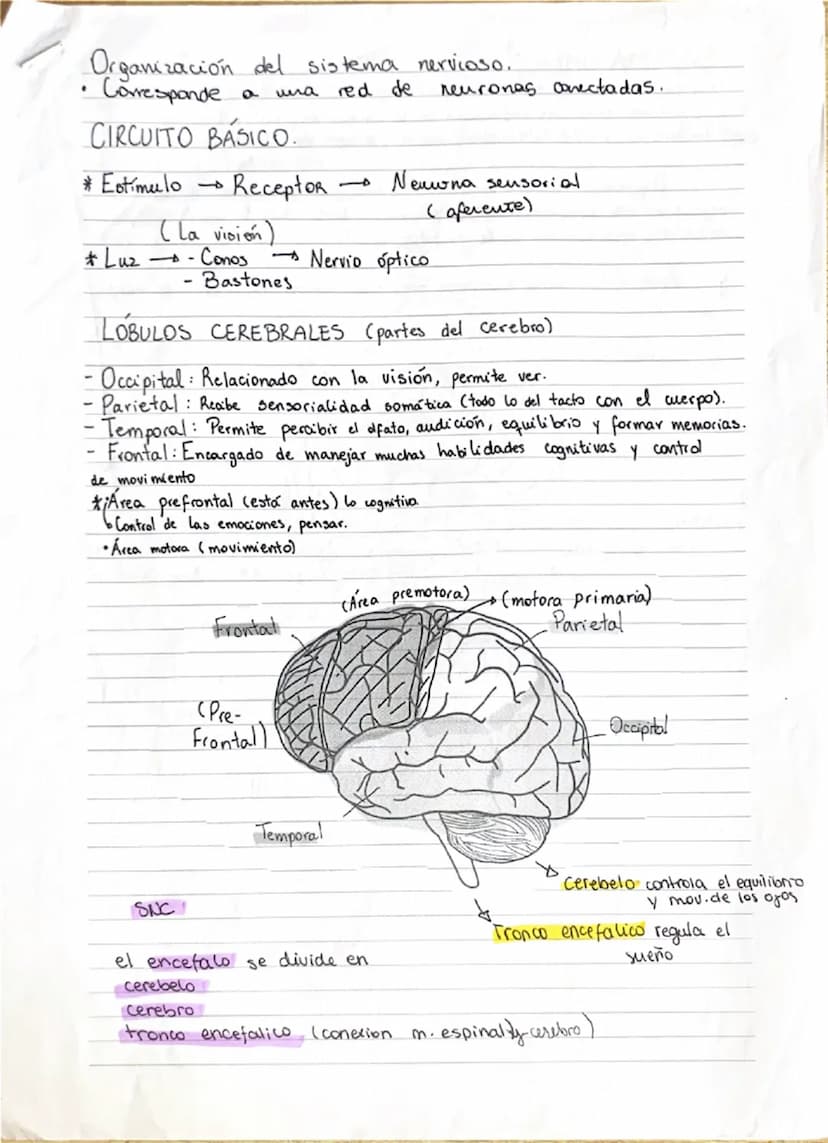 Organización del sistema nervioso.
• Corresponde a una red de neuronas conectadas.
CIRCUITO BÁSICO.
* Estímulo → Receptor → Neurona sensorial
(aferente)
(La visión)
* Luz → - Conos → Nervio óptico
- Bastones
LÓBULOS CEREBRALES (partes del cerebro)
- Occipital: Relacionado con la visión, permite ver.
- Parietal: Recibe sensorialidad somática (todo lo del tacto con el cuerpo).
- Temporal: Permite percibir el olfato, audición, equilibrio y formar memorias.
- Frontal: Encargado de manejar muchas habilidades cognitivas y control
de movimiento
* Área prefrontal (está antes) lo cognitivo
Control de las emociones, pensar.
• Área motora (movimiento)
(Área premotora) → (motora primaria)
Frontal
Parietal
(Pre-
Frontal)
Occipital
Temporal
Cerebelo controla el equilibrio
y mov. de los ojos
SNC
Tronco encefalico regula el
sueño
el encefalo se divide en
cerebelo
cerebro
tronco encefalico (conexion m. espinal y cerebro)